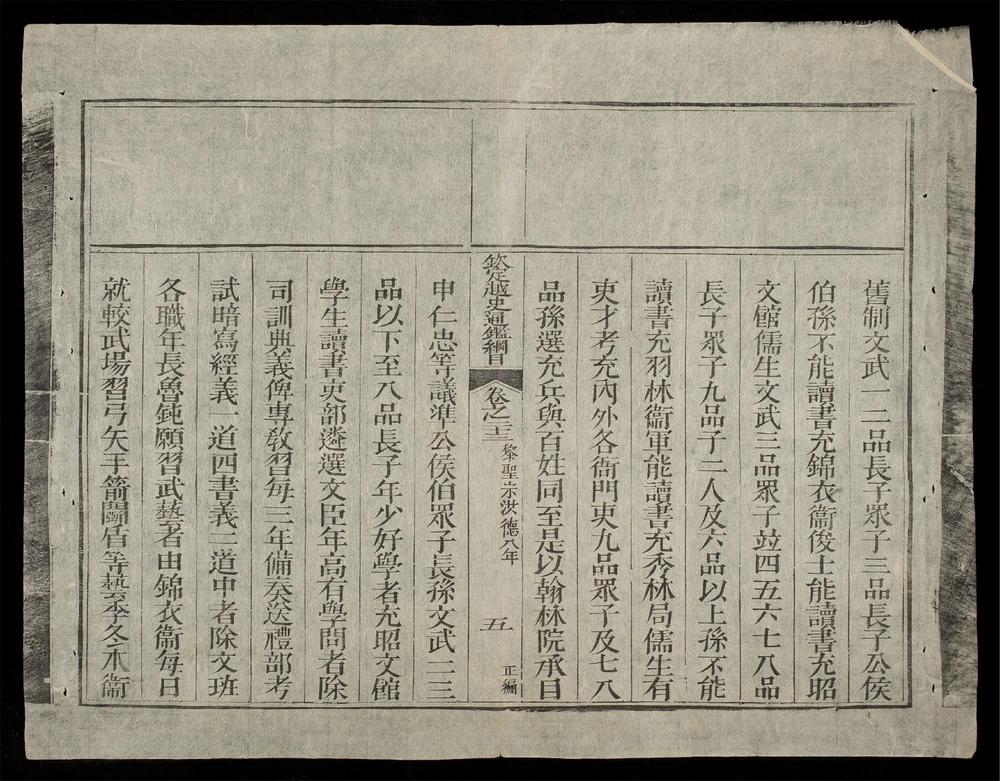 舊制文武一二品長子眾子三品長子公侯
伯孫不能讀書充錦衣衞俊士能讀書充昭
文館儒生文武三品眾子並四五六七八品
長子眾子九品子二人及六品以上孫不能
讀書充羽林衞軍能讀書充秀林局儒生有
吏才考充內外各衙門吏九品眾子及七八
品孫選充兵與百姓同至是以翰林院承旨
欽定越史通鑑綱目
卷之二十三
黎聖宗洪德八年
五
正編
申仁忠等議準公侯伯眾子長孫文武二三
品以下至八品長子年少好學者充昭文館
學生讀書吏部遴選文臣年高有學問者除
司訓典義俾專敎習每三年備奏送禮部考
試暗寫經義一道四書義二道中者除文班
各職年長魯鈍願習武藝者由錦衣衞每日
就較武場習弓矢手箭鬭盾等藝季冬本衞